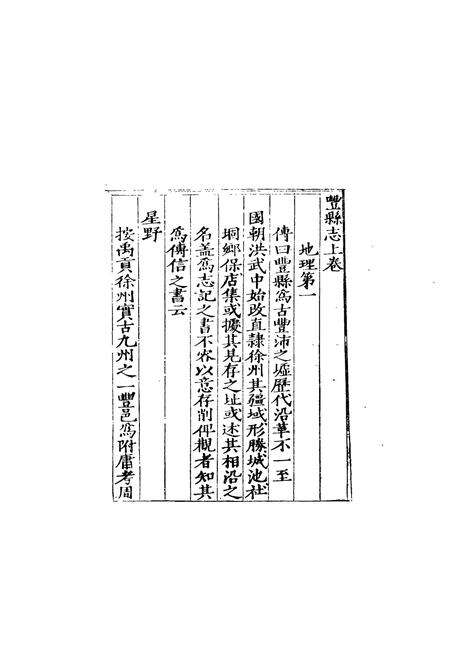 豐縣志上卷
地理第一
傳曰豐縣為古豐沛之墟歷代沿革不一至
國朝洪武中始改直隸徐州其疆域形勝城池社
垌鄉保店集或據其見存之址或述其相沿之
名盖為志記之書不容以意存削俾觀者知其
為傳信之書云
星野
按禹貢徐州實古九州之一豐邑為附庸考周